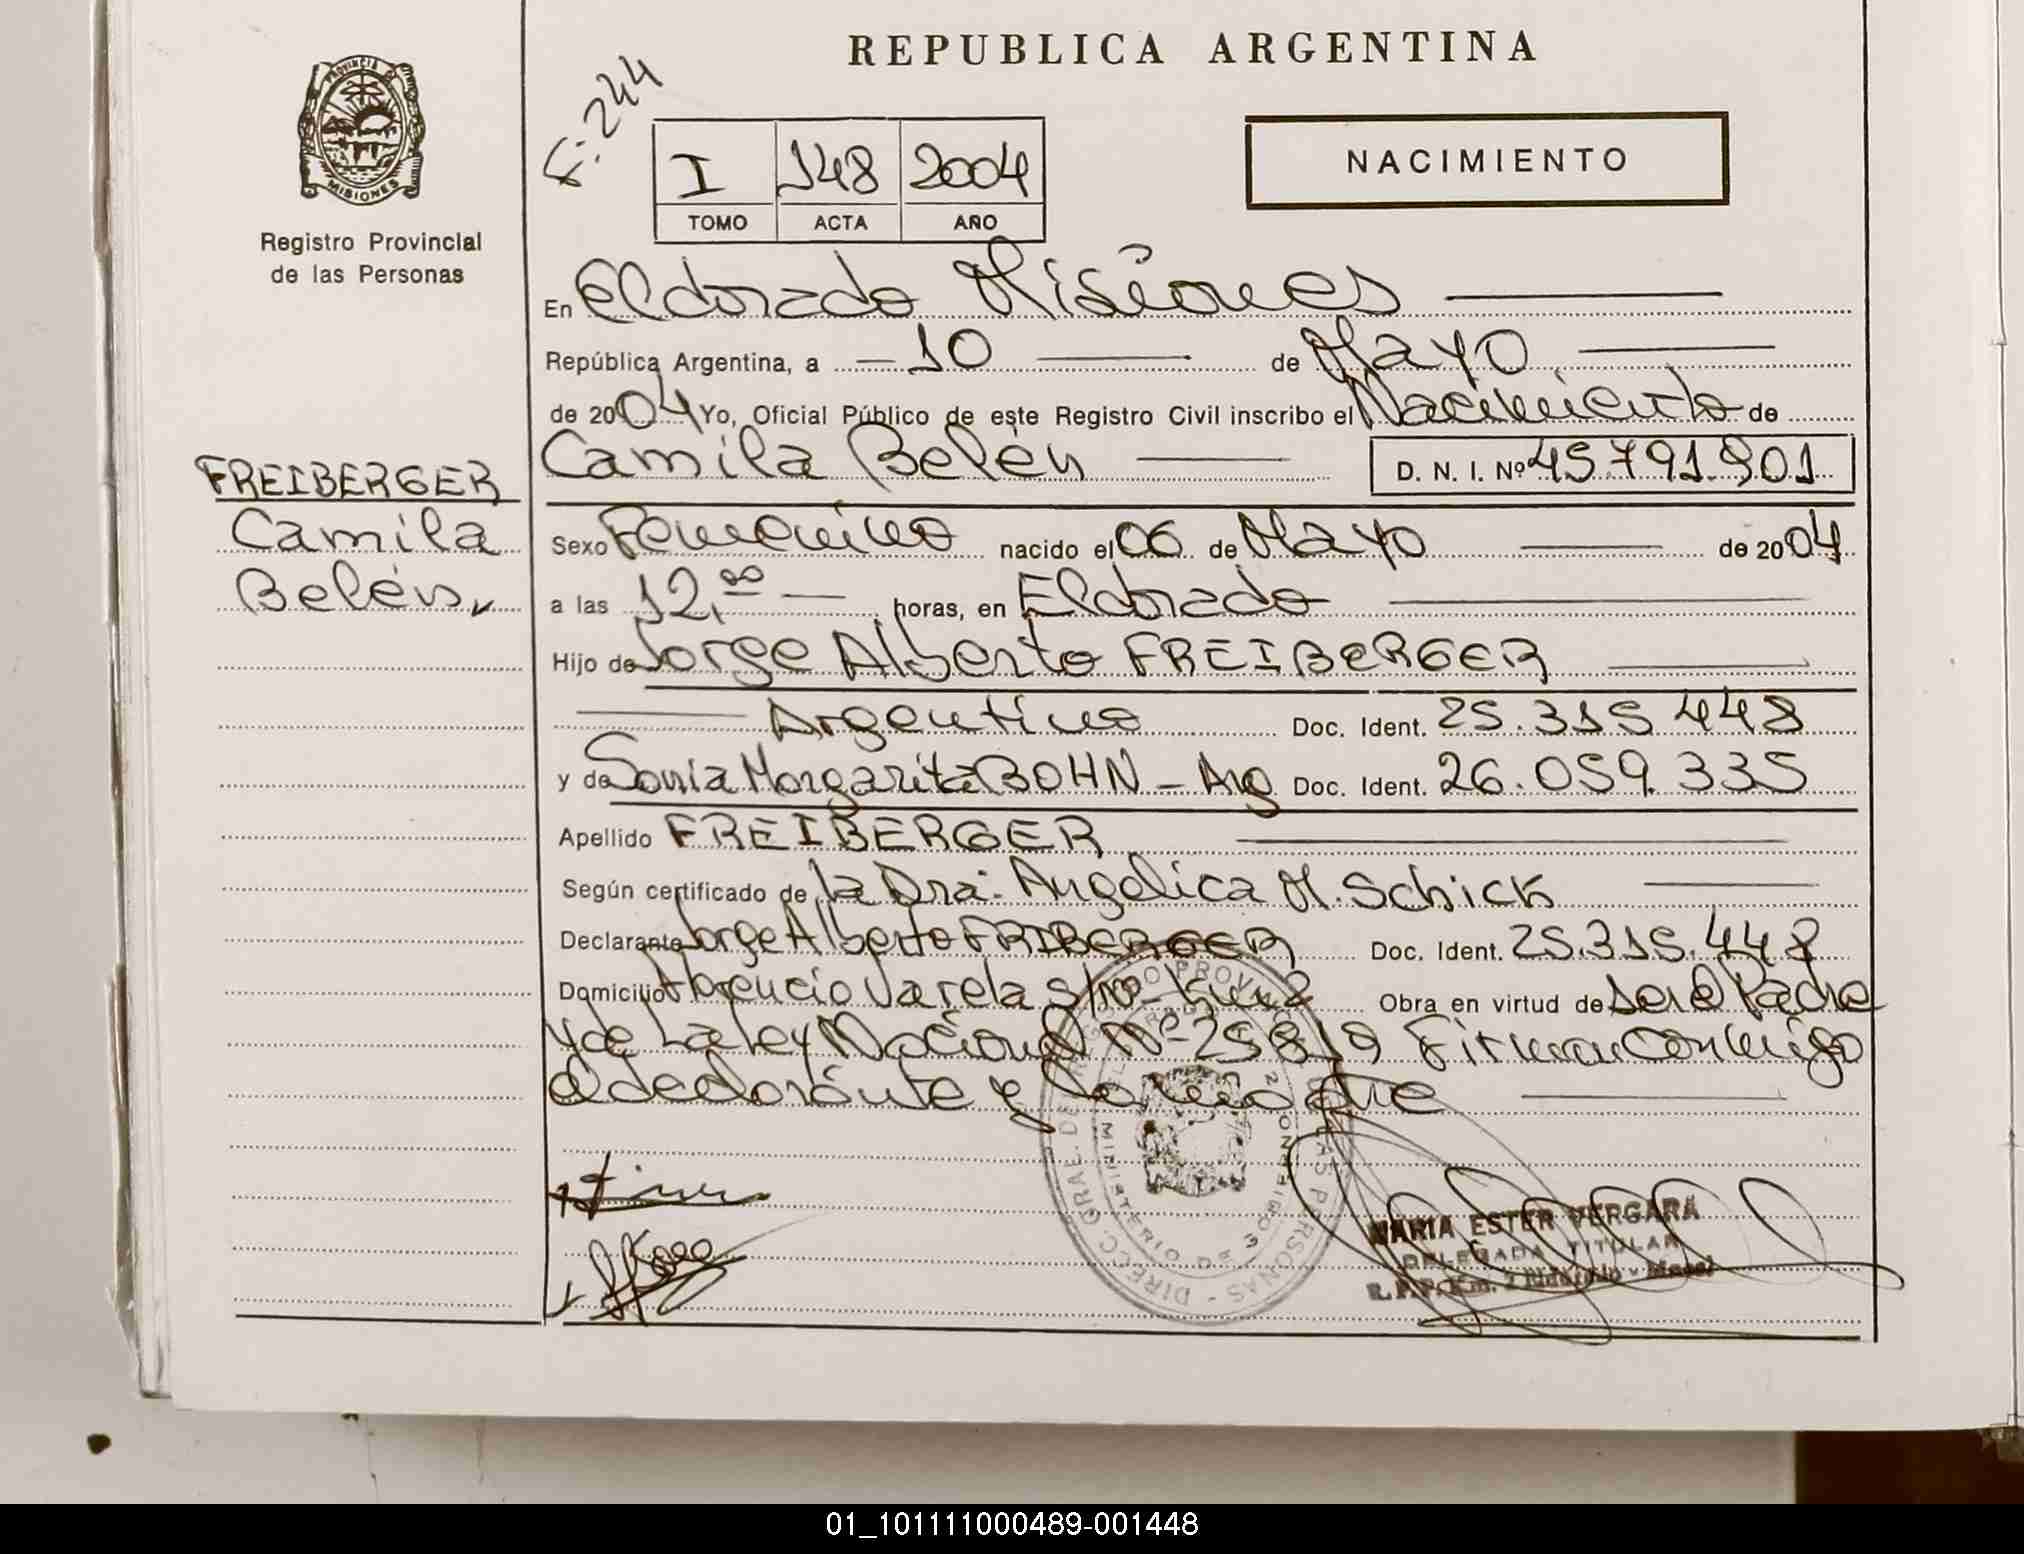 REPUBLICA ARGENTINA
PROVINCIA DE
MISIONES
Registro Provincial
de las Personas
F:244
I 148 2004
TOMO ACTA AÑO
NACIMIENTO
En Eldorado Misiones
República Argentina, a 10 de Mayo
de 2004 Yo, Oficial Público de este Registro Civil inscribo el Nacimiento de
Camila Belén D. N. I. Nº 45.791.901
FREIBERGER
Camila
Belén
Sexo Femenino nacido el 06 de Mayo de 2004
a las 12,00 horas, en Eldorado
Hijo de Jorge Alberto FREIBERGER
Argentino Doc. Ident. 25.315.448
y de Sonia Margarita BOHN - Arg Doc. Ident. 26.059.335
Apellido FREIBERGER
Según certificado de la Dra: Angelica M. Schick
Declarante Jorge Alberto FRIBERGER Doc. Ident. 25.315.448
Domicilio Florencio Varela s/nº - Km 2 Obra en virtud de Ser el Padre
y de La Ley Nacional Nº 25819 Firman Conmigo
el declarante y la madre
DIRECC. GRAL. DE REGISTRO PROV. DE LAS PERSONAS
MINISTERIO DE
MARIA ESTER VERGARA
DELEGADA TITULAR
R. P. P. Km. 2 Eldorado - Mnes.
01_101111000489-001448